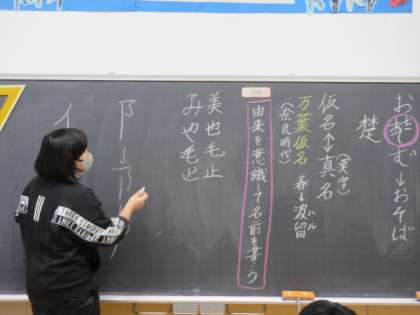 お楚む→おそば
楚
仮名↔真名
(漢字)
万葉仮名 春→波留
ハル
(奈良時代)
由来を意識して名前を書こう
美也毛止
みや
阝
イ